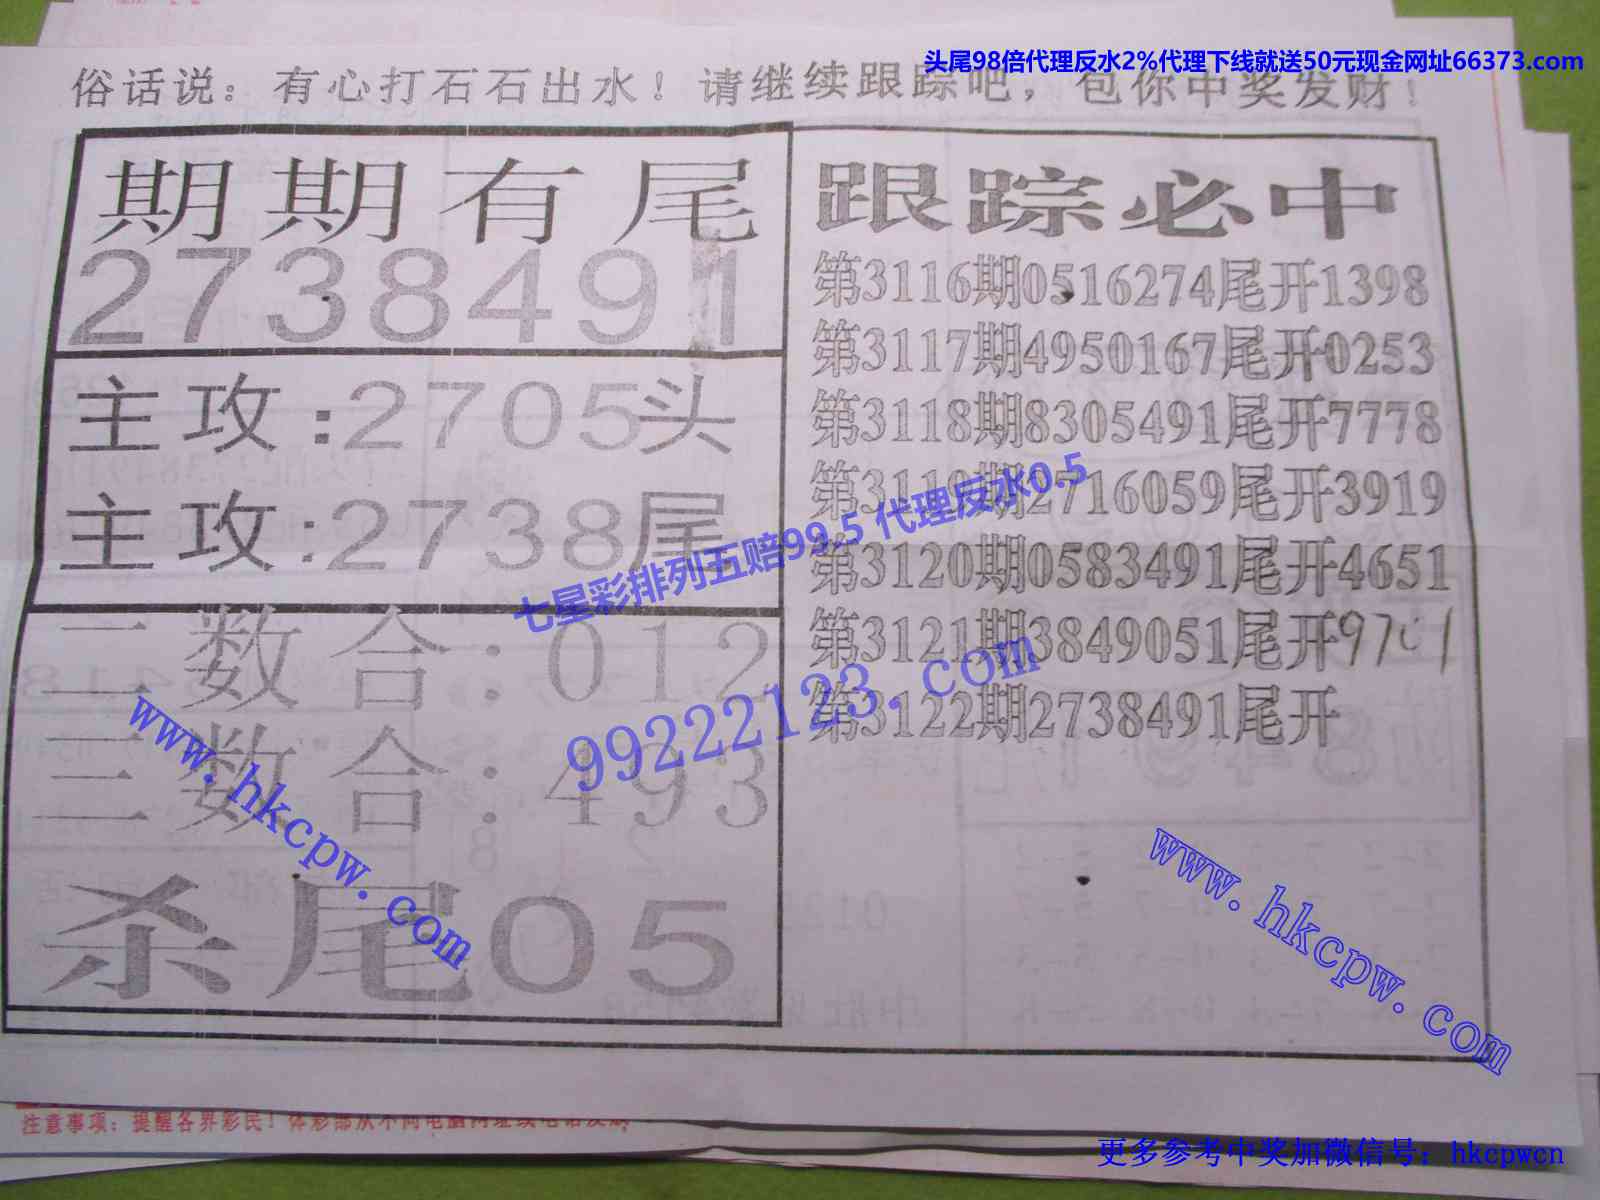 头尾98倍代理反水2%代理下线就送50元现金网址66373.com
俗话说：有心打石石出水！请继续跟踪吧，包你中奖发财！
期期有尾
2738491
主攻:2705头
主攻:2738尾
二数合:012
三数合:493
杀尾05
跟踪必中
第3116期0516274尾开1398
第3117期4950167尾开0253
第3118期8305491尾开7778
第3119期2716059尾开3919
第3120期0583491尾开4651
第3121期3849051尾开9701
第3122期2738491尾开
七星彩排列五赔99.5 代理反水0.5
99222123.com
www.hkcpw.com
www.hkcpw.com
注意事项：提醒各界彩民！体彩部从不向电脑网址
更多参考中奖加微信号：hkcpwcn